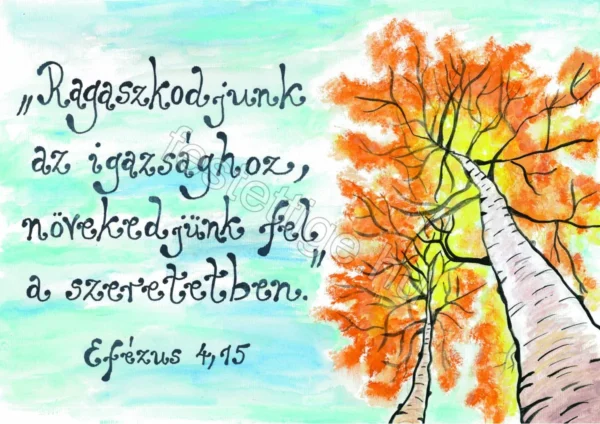 „Ragaszkodjunk
az igazsághoz,
növekedjünk fel
a szeretetben.”
Efézus 4,15